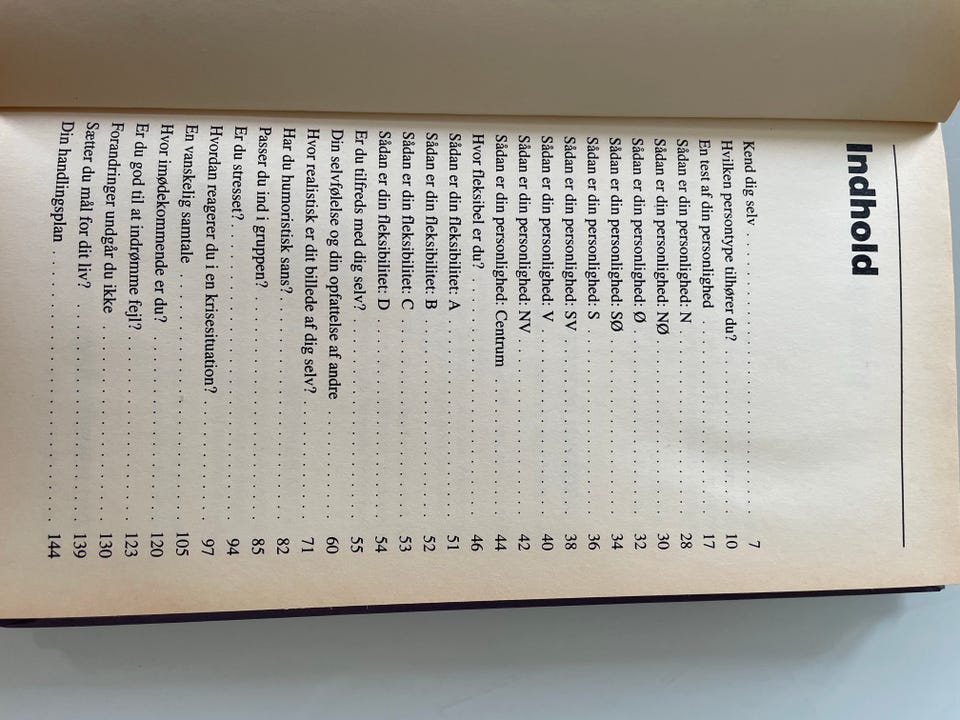 Indhold
Kend dig selv . . . . . . . . . . . . . . . . . . . . 7
Hvilken persontype tilhører du? . . . . . . . . . . . . 10
En test af din personlighed . . . . . . . . . . . . . . 17
Sådan er din personlighed: N . . . . . . . . . . . . . 28
Sådan er din personlighed: NØ . . . . . . . . . . . . . 30
Sådan er din personlighed: Ø . . . . . . . . . . . . . 32
Sådan er din personlighed: SØ . . . . . . . . . . . . . 34
Sådan er din personlighed: S . . . . . . . . . . . . . 36
Sådan er din personlighed: SV . . . . . . . . . . . . . 38
Sådan er din personlighed: V . . . . . . . . . . . . . 40
Sådan er din personlighed: NV . . . . . . . . . . . . . 42
Sådan er din personlighed: Centrum . . . . . . . . . . 44
Hvor fleksibel er du? . . . . . . . . . . . . . . . . . 46
Sådan er din fleksibilitet: A . . . . . . . . . . . . . 51
Sådan er din fleksibilitet: B . . . . . . . . . . . . . 52
Sådan er din fleksibilitet: C . . . . . . . . . . . . . 53
Sådan er din fleksibilitet: D . . . . . . . . . . . . . 54
Er du tilfreds med dig selv? . . . . . . . . . . . . . 55
Din selvfølelse og din opfattelse af andre . . . . . . 60
Hvor realistisk er dit billede af dig selv? . . . . . . 71
Har du humoristisk sans? . . . . . . . . . . . . . . . 82
Passer du ind i gruppen? . . . . . . . . . . . . . . . 85
Er du stresset? . . . . . . . . . . . . . . . . . . . . 94
Hvordan reagerer du i en krisesituation? . . . . . . . 97
En vanskelig samtale . . . . . . . . . . . . . . . . . 105
Hvor imødekommende er du? . . . . . . . . . . . . . . . 120
Er du god til at indrømme fejl? . . . . . . . . . . . . 123
Forandringer undgår du ikke . . . . . . . . . . . . . . 130
Sætter du mål for dit liv? . . . . . . . . . . . . . . 139
Din handlingsplan . . . . . . . . . . . . . . . . . . . 144